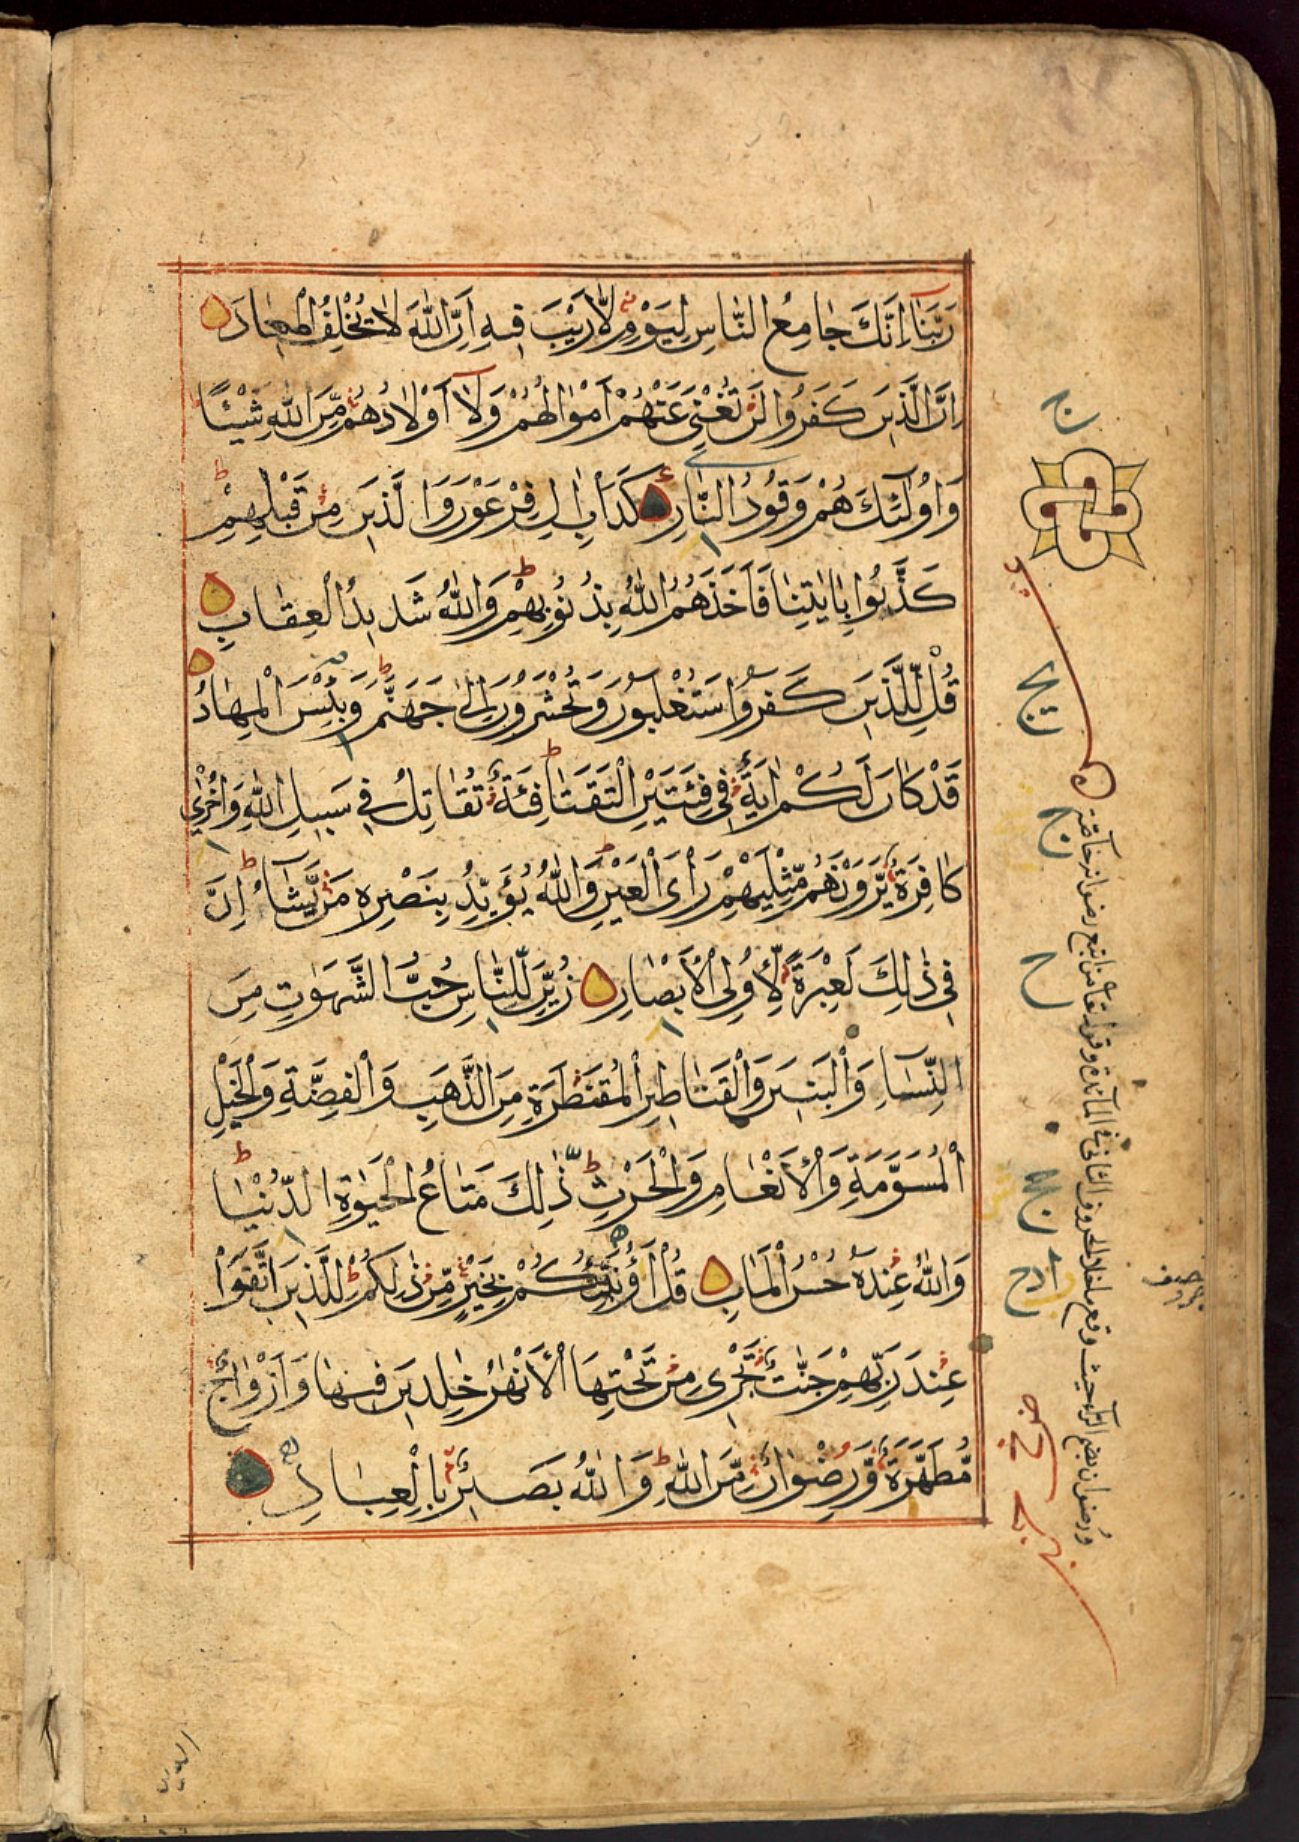 رَبَّنَا إِنَّكَ جَامِعُ النَّاسِ لِيَوْمٍ لَّا رَيْبَ فِيهِ إِنَّ اللّٰهَ لَا يُخْلِفُ الْمِيعَادَ
اِنَّ الَّذِينَ كَفَرُوا لَنْ تُغْنِيَ عَنْهُمْ أَمْوَالُهُمْ وَلَآ أَوْلَادُهُمْ مِّنَ اللّٰهِ شَيْئًا
وَاُولٰٓئِكَ هُمْ وَقُودُ النَّارِ كَدَأْبِ اٰلِ فِرْعَوْنَ وَالَّذِينَ مِنْ قَبْلِهِمْ
كَذَّبُوا بِاٰيٰتِنَا فَاَخَذَهُمُ اللّٰهُ بِذُنُوبِهِمْ وَاللّٰهُ شَدِيدُ الْعِقَابِ
قُلْ لِّلَّذِينَ كَفَرُوا سَتُغْلَبُونَ وَتُحْشَرُونَ اِلٰى جَهَنَّمَ وَبِئْسَ الْمِهَادُ
قَدْ كَانَ لَكُمْ اٰيَةٌ فِي فِئَتَيْنِ الْتَقَتَا فِئَةٌ تُقَاتِلُ فِي سَبِيلِ اللّٰهِ وَاُخْرٰى
كَافِرَةٌ يَّرَوْنَهُمْ مِّثْلَيْهِمْ رَأْيَ الْعَيْنِ وَاللّٰهُ يُؤَيِّدُ بِنَصْرِهِ مَنْ يَّشَآءُ اِنَّ
فِي ذٰلِكَ لَعِبْرَةً لِّأُولِي الْأَبْصَارِ زُيِّنَ لِلنَّاسِ حُبُّ الشَّهَوٰتِ مِنَ
النِّسَآءِ وَالْبَنِينَ وَالْقَنَاطِيرِ الْمُقَنْطَرَةِ مِنَ الذَّهَبِ وَالْفِضَّةِ وَالْخَيْلِ
الْمُسَوَّمَةِ وَالْأَنْعَامِ وَالْحَرْثِ ذٰلِكَ مَتَاعُ الْحَيٰوةِ الدُّنْيَا
وَاللّٰهُ عِنْدَهُ حُسْنُ الْمَاٰبِ قُلْ أَؤُنَبِّئُكُمْ بِخَيْرٍ مِّنْ ذٰلِكُمْ لِلَّذِينَ اتَّقَوْا
عِنْدَ رَبِّهِمْ جَنّٰتٌ تَجْرِي مِنْ تَحْتِهَا الْأَنْهٰرُ خٰلِدِينَ فِيهَا وَأَزْوَاجٌ
مُّطَهَّرَةٌ وَّرِضْوَانٌ مِّنَ اللّٰهِ وَاللّٰهُ بَصِيرٌ بِالْعِبَادِ